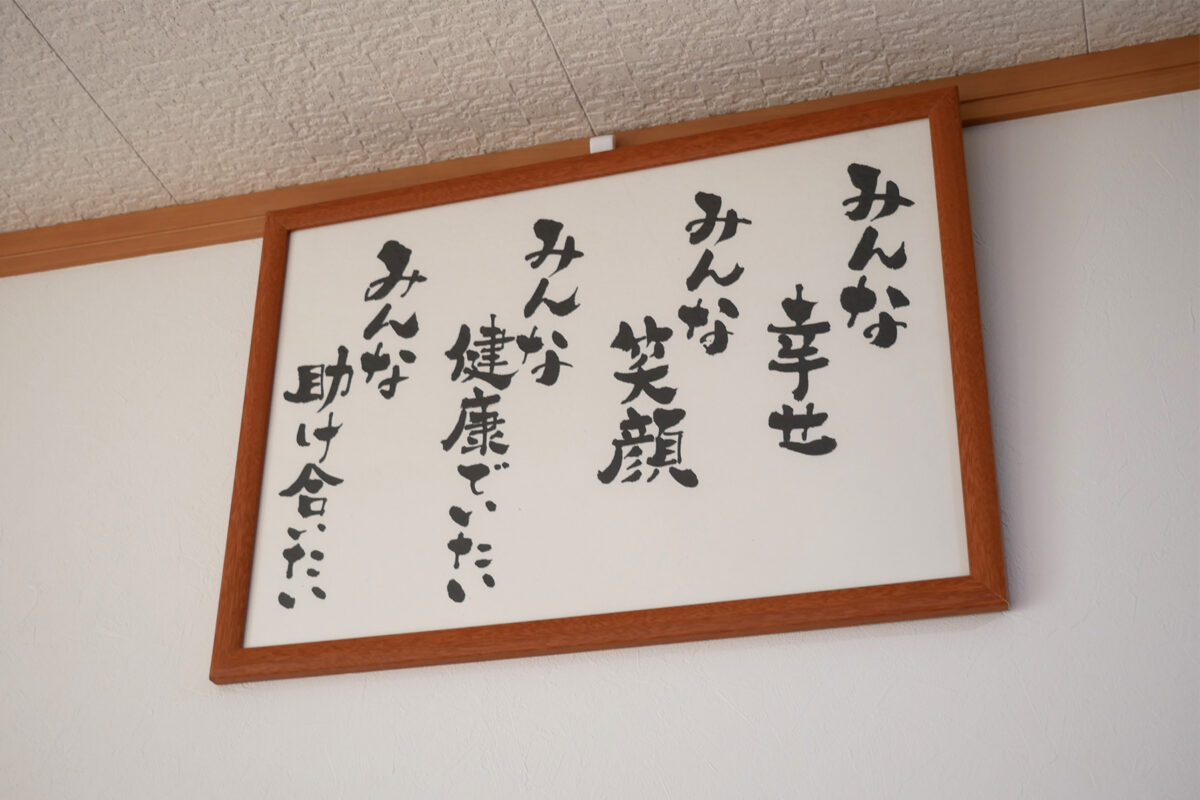 みんな
幸せ
みんな
笑顔
みんな
健康でいたい
みんな
助け合いたい